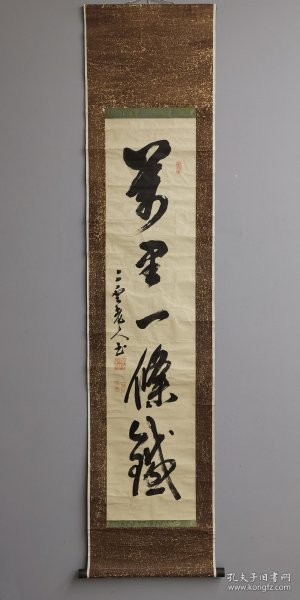 萬里一條鐵
雲老人書
孔夫子旧书网